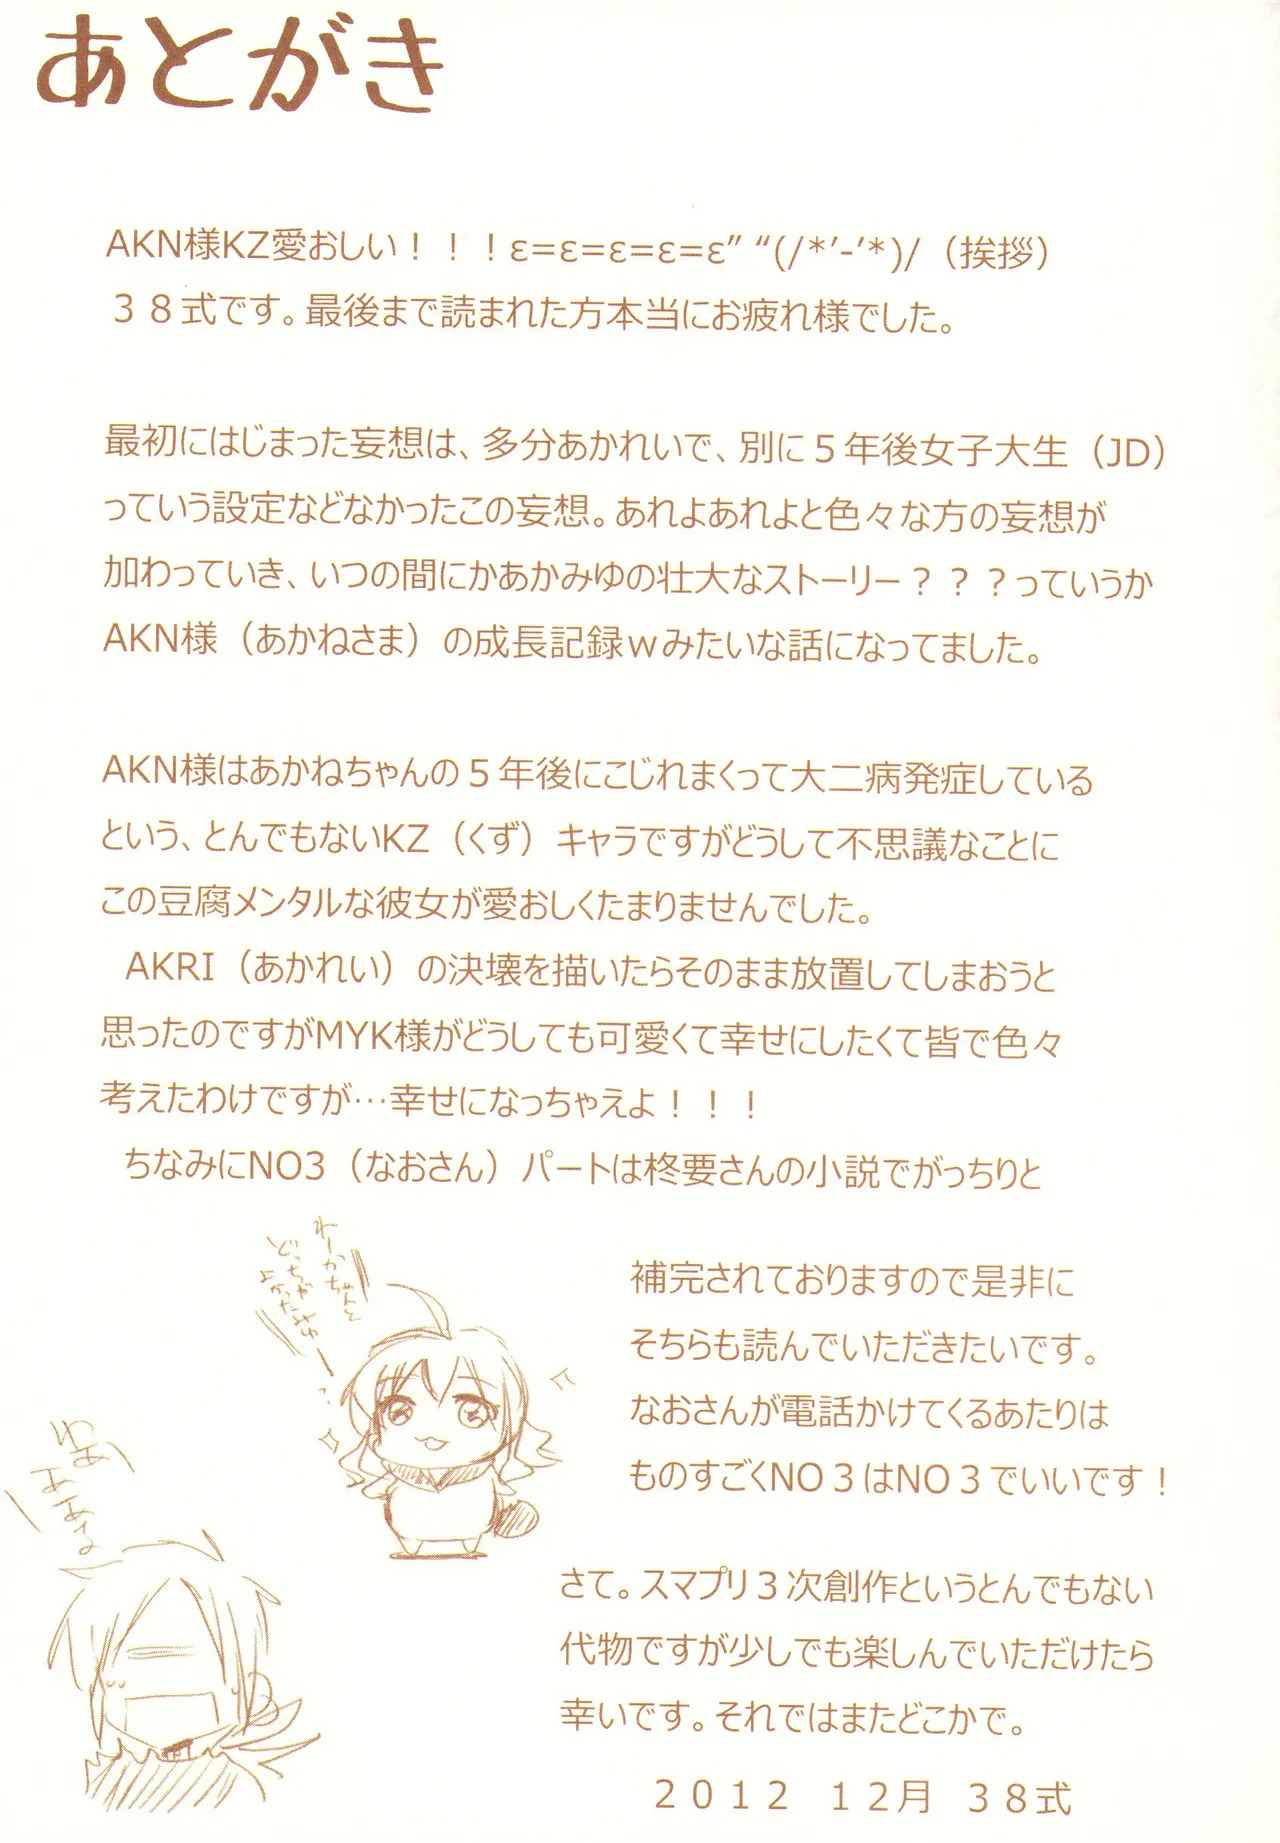 あとがき
AKN様KZ愛おしい！！！ε=ε=ε=ε=ε” “(/*’-’*)/（挨拶）
３８式です。最後まで読まれた方本当にお疲れ様でした。
最初にはじまった妄想は、多分あかれいで、別に５年後女子大生（JD）
っていう設定などなかったこの妄想。あれよあれよと色々な方の妄想が
加わっていき、いつの間にかあかみゆの壮大なストーリー？？？っていうか
AKN様（あかねさま）の成長記録ｗみたいな話になってました。
AKN様はあかねちゃんの５年後にこじれまくって大二病発症している
という、とんでもないKZ（くず）キャラですがどうして不思議なことに
この豆腐メンタルな彼女が愛おしくたまりませんでした。
AKRI（あかれい）の決壊を描いたらそのまま放置してしまおうと
思ったのですがMYK様がどうしても可愛くて幸せにしたくて皆で色々
考えたわけですが…幸せになっちゃえよ！！！
ちなみにNO3（なおさん）パートは柊要さんの小説でがっちりと
補完されておりますので是非に
そちらも読んでいただきたいです。
なおさんが電話かけてくるあたりは
ものすごくNO３はNO３でいいです！
さて。スマプリ３次創作というとんでもない
代物ですが少しでも楽しんでいただけたら
幸いです。それではまたどこかで。
２０１２　１２月　３８式